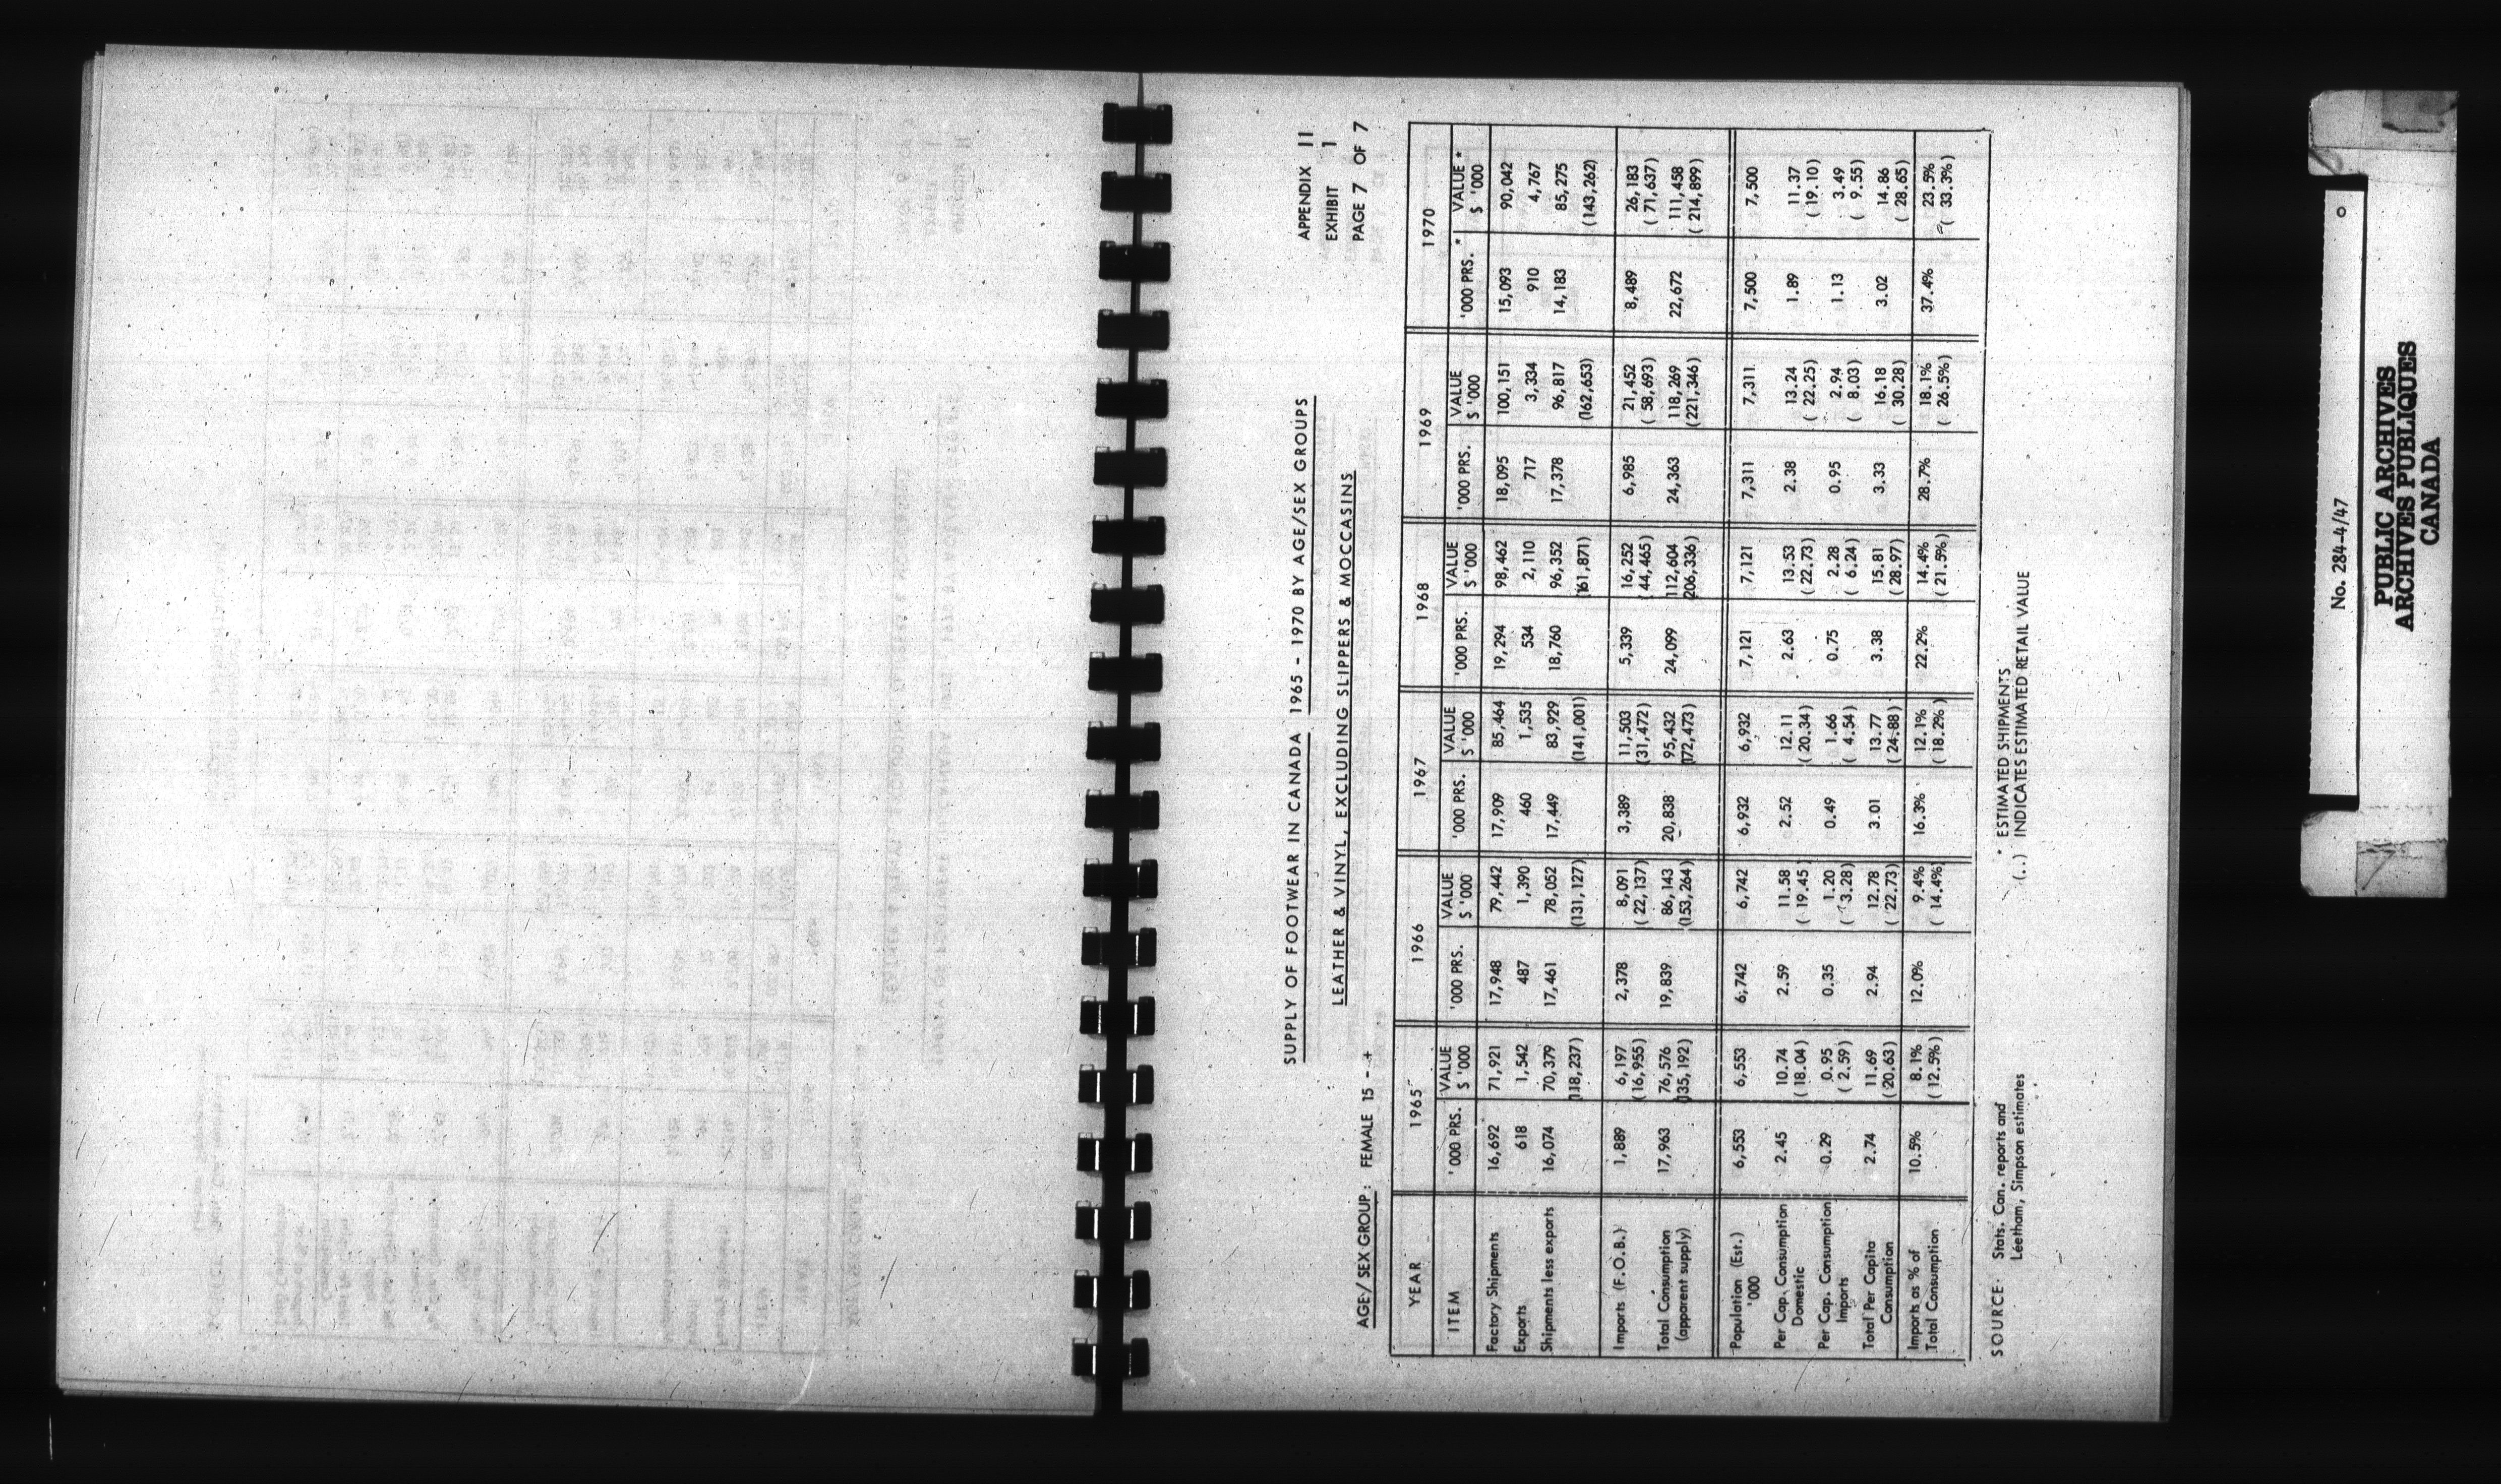 APPENDIX 11
EXHIBIT 1
PAGE 7 OF 7
SUPPLY OF FOOTWEAR IN CANADA 1965 - 1970 BY AGE/SEX GROUPS
LEATHER & VINYL, EXCLUDING SLIPPERS & MOCCASINS
AGE/ SEX GROUP: FEMALE 15 - +
YEAR 1965 1966 1967 1968 1969 1970
ITEM '000 PRS. VALUE $ '000 '000 PRS. VALUE $ '000 '000 PRS. VALUE $ '000 '000 PRS. VALUE $ '000 '000 PRS. VALUE $ '000 '000 PRS. * VALUE * $ '000
Factory Shipments 16,692 71,921 17,948 79,442 17,909 85,464 19,294 98,462 18,095 100,151 15,093 90,042
Exports 618 1,542 487 1,390 460 1,535 534 2,110 717 3,334 910 4,767
Shipments less exports 16,074 70,379 17,461 78,052 17,449 83,929 18,760 96,352 17,378 96,817 14,183 85,275
(118,237) (131,127) (141,001) (161,871) (162,653) (143,262)
Imports (F.O.B.) 1,889 6,197 2,378 8,091 3,389 11,503 5,339 16,252 6,985 21,452 8,489 26,183
(16,955) (22,137) (31,472) (44,465) (58,693) (71,637)
Total Consumption 17,963 76,576 19,839 86,143 20,838 95,432 24,099 112,604 24,363 118,269 22,672 111,458
(apparent supply) (135,192) (153,264) (172,473) (206,336) (221,346) (214,899)
Population (Est.) 6,553 6,553 6,742 6,742 6,932 6,932 7,121 7,121 7,311 7,311 7,500 7,500
'000
Per Cap. Consumption 2.45 10.74 2.59 11.58 2.52 12.11 2.63 13.53 2.38 13.24 1.89 11.37
Domestic (18.04) (19.45) (20.34) (22.73) (22.25) (19.10)
Per Cap. Consumption 0.29 0.95 0.35 1.20 0.49 1.66 0.75 2.28 0.95 2.94 1.13 3.49
Imports (2.59) (3.28) (4.54) (6.24) (8.03) (9.55)
Total Per Capita 2.74 11.69 2.94 12.78 3.01 13.77 3.38 15.81 3.33 16.18 3.02 14.86
Consumption (20.63) (22.73) (24.88) (28.97) (30.28) (28.65)
Imports as % of 10.5% 8.1% 12.0% 9.4% 16.3% 12.1% 22.2% 14.4% 28.7% 18.1% 37.4% 23.5%
Total Consumption (12.5%) (14.4%) (18.2%) (21.5%) (26.5%) (33.3%)
SOURCE: Stats. Can. reports and
Leetham, Simpson estimates
* ESTIMATED SHIPMENTS
(..) INDICATES ESTIMATED RETAIL VALUE
No. 284-4/47
PUBLIC ARCHIVES
ARCHIVES PUBLIQUES
CANADA